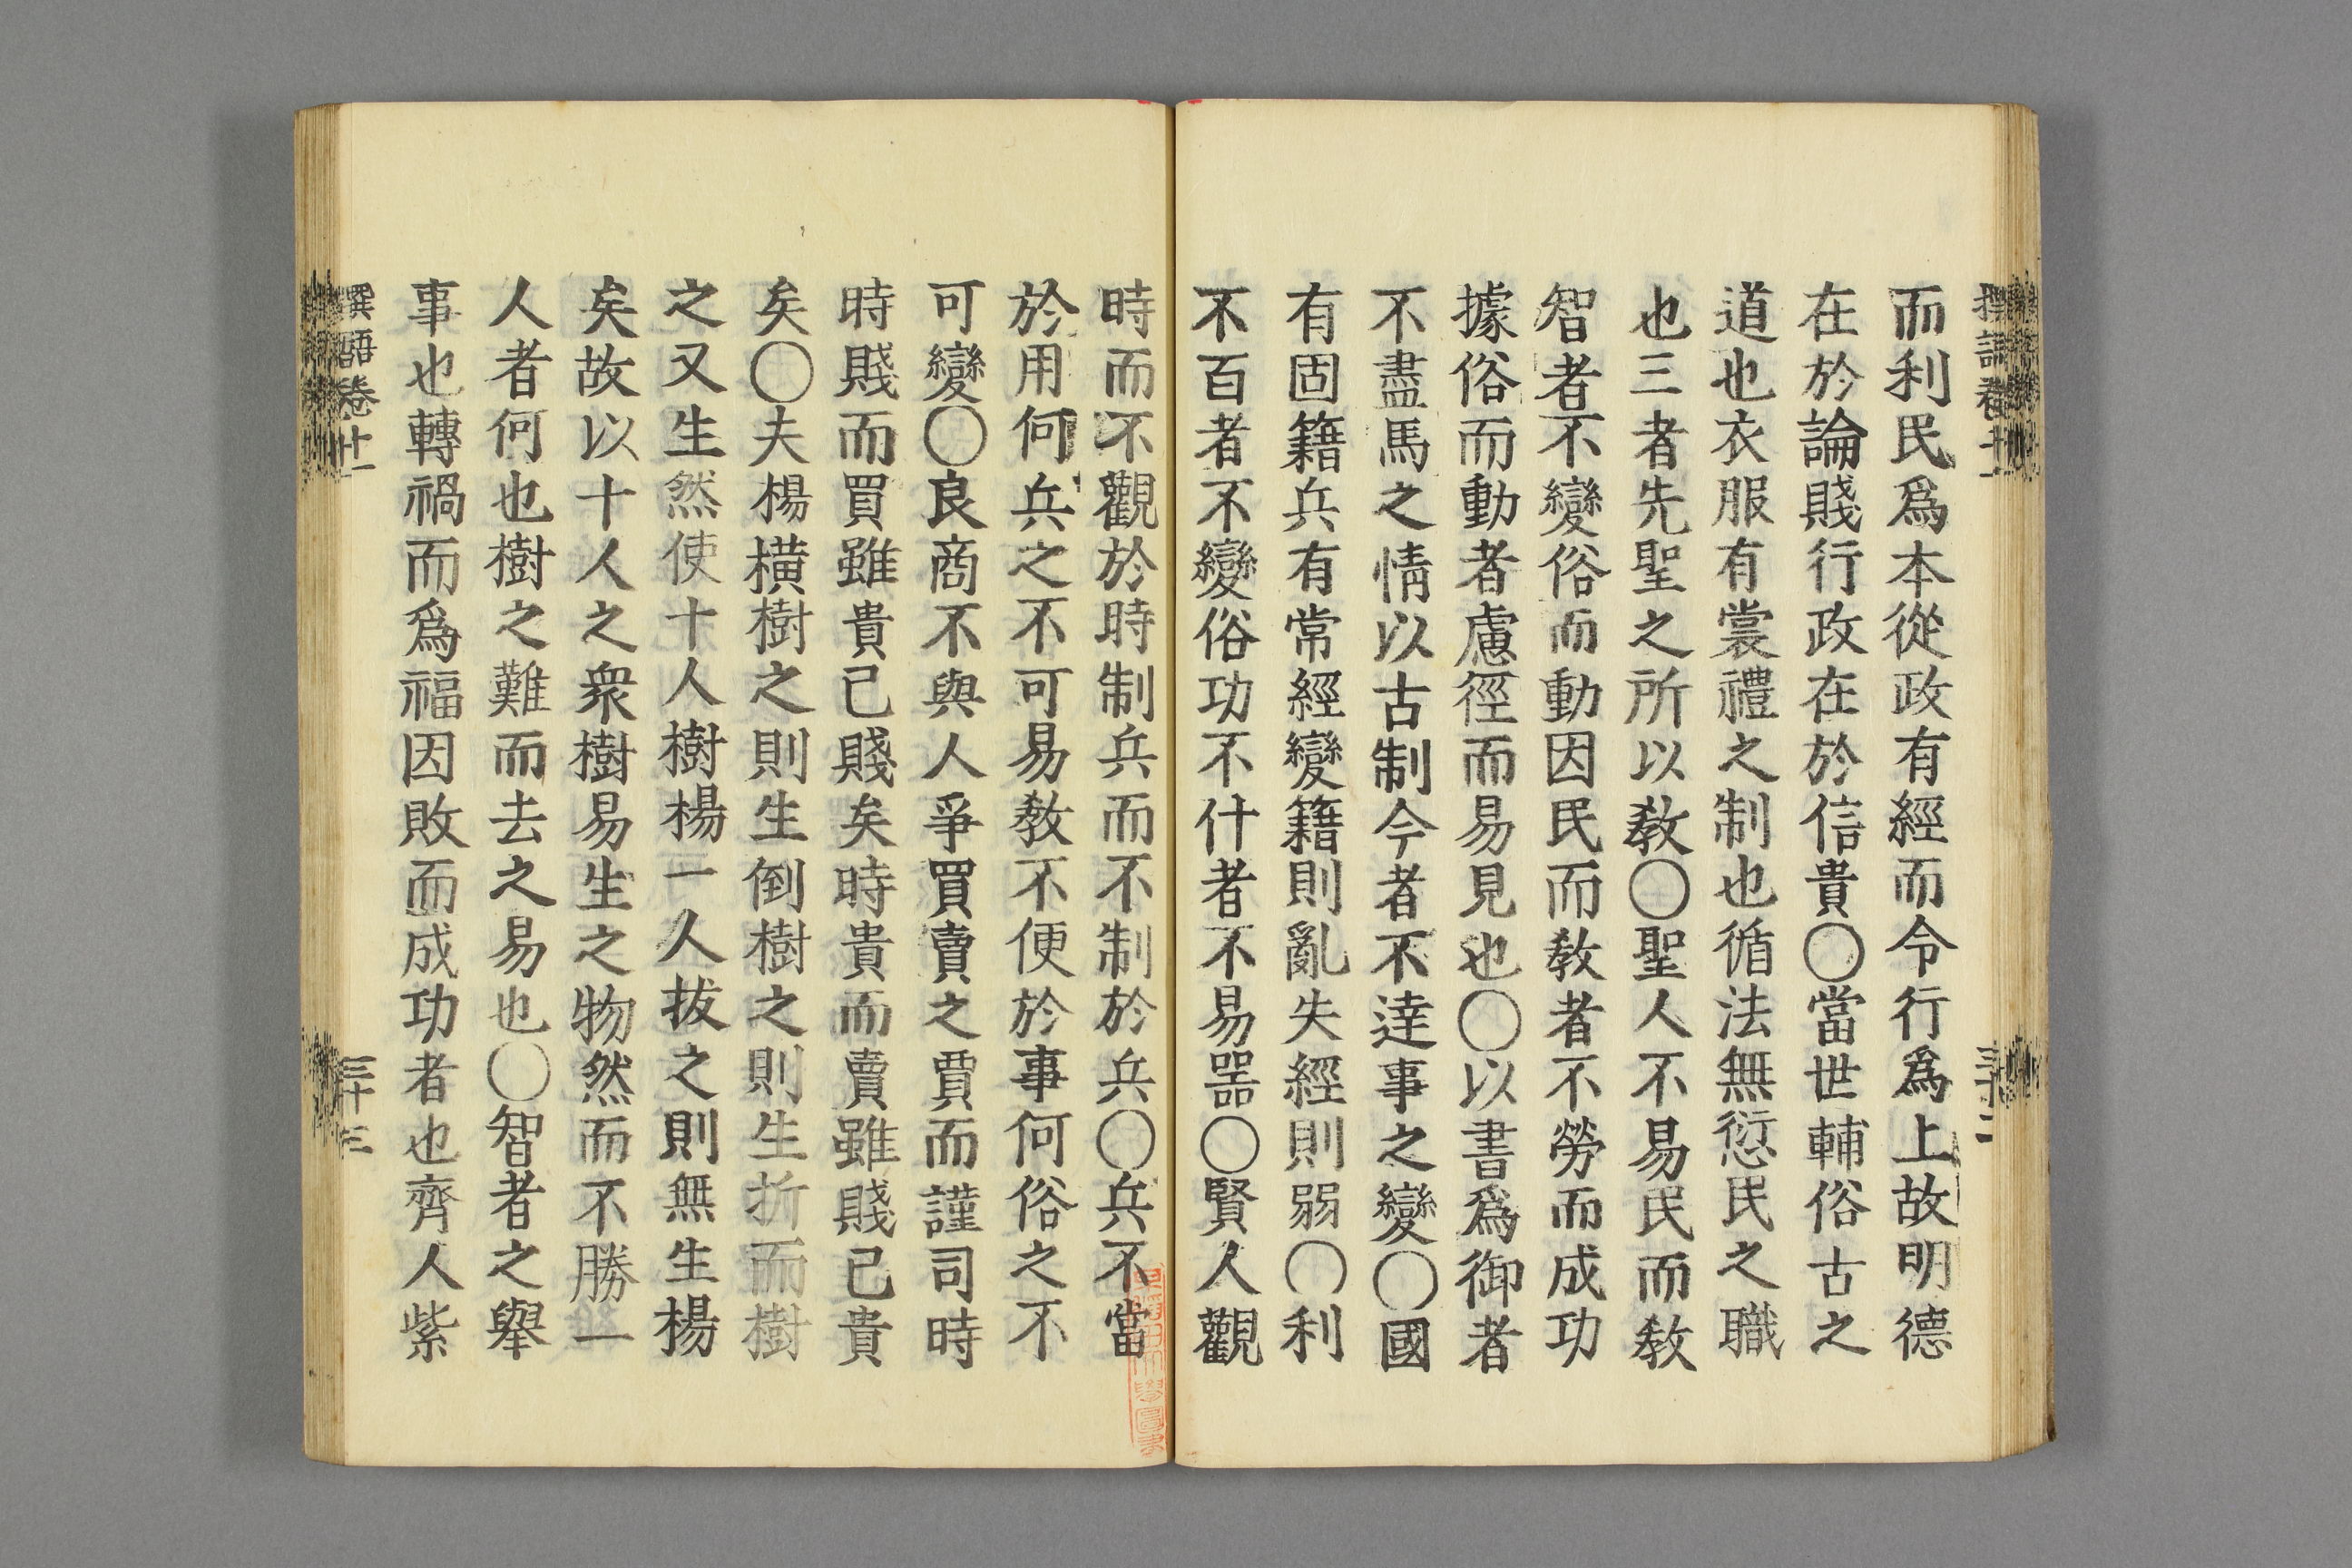 而利民爲本從政有經而令行爲上故明德
在於論賤行政在於信貴〇當世輔俗古之
道也衣服有裳禮之制也循法無愆民之職
也三者先聖之所以教〇聖人不易民而教
智者不變俗而動因民而教者不勞而成功
據俗而動者慮徑而易見也〇以書爲御者
不盡馬之情以古制今者不達事之變〇國
有固籍兵有常經變籍則亂失經則弱〇利
不百者不變俗功不什者不易噐〇賢人觀
時而不觀於時制兵而不制於兵〇兵不當
於用何兵之不可易教不便於事何俗之不
可變〇良商不與人爭買賣之賈而謹司時
時賤而買雖貴己賤矣時貴而賣雖賤己貴
矣〇夫楊橫樹之則生倒樹之則生折而樹
之又生然使十人樹楊一人拔之則無生楊
矣故以十人之衆樹易生之物然而不勝一
人者何也樹之難而去之易也〇智者之舉
事也轉禍而爲福因敗而成功者也齊人紫
撰語卷十一
三十三